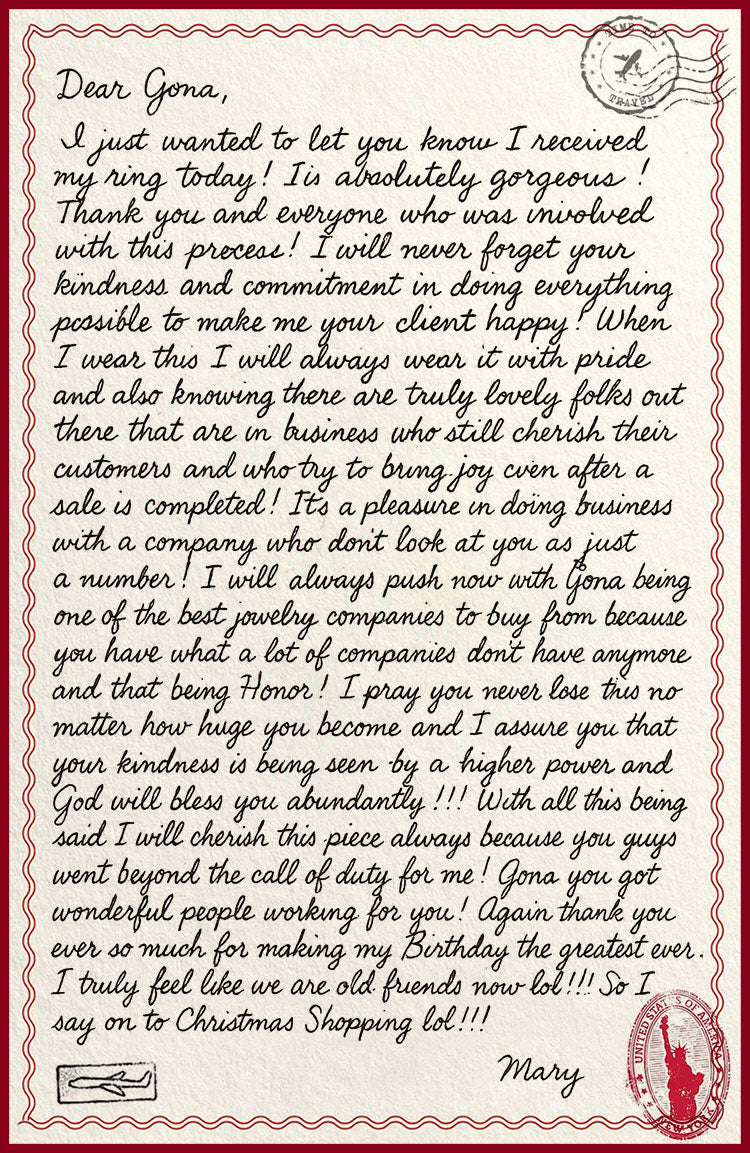 TIME TO
TRAVEL
Dear Gona,
I just wanted to let you know I received
my ring today! Iis absolutely gorgeous !
Thank you and everyone who was involved
with this process! I will never forget your
kindness and commitment in doing everything
possible to make me your client happy! When
I wear this I will always wear it with pride
and also knowing there are truly lovely folks out
there that are in business who still cherish their
customers and who try to bring joy even after a
sale is completed! It's a pleasure in doing business
with a company who don't look at you as just
a number! I will always push now with Gona being
one of the best jewelry companies to buy from because
you have what a lot of companies don't have anymore
and that being Honor! I pray you never lose this no
matter how huge you become and I assure you that
your kindness is being seen by a higher power and
God will bless you abundantly!!! With all this being
said I will cherish this piece always because you guys
went beyond the call of duty for me! Gona you got
wonderful people working for you! Again thank you
ever so much for making my Birthday the greatest ever.
I truly feel like we are old friends now lol!!! So I
say on to Christmas Shopping lol!!!
Mary
UNITED STATES OF AMERICA
NEW YORK